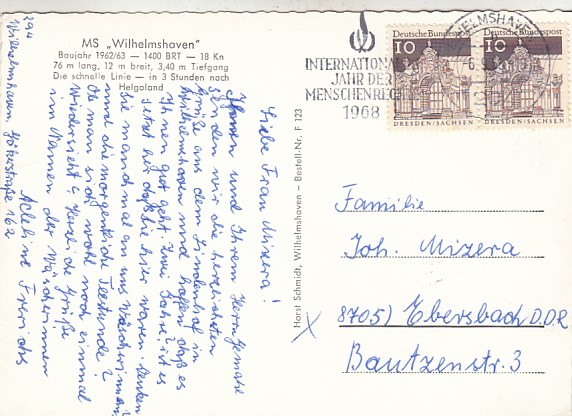 MS „Wilhelmshaven"
Baujahr 1962/63 — 1400 BRT — 18 Kn
76 m lang, 12 m breit, 3,40 m Tiefgang
Die schnelle Linie — in 3 Stunden nach
Helgoland
294
Wilhelmshaven, Gökerstraße 162
Liebe Frau Mizera!
Ihnen und Ihrem Herrn Gemahl
senden wir die herzlichsten
Grüße aus dem Lindenhof in
Wilhelmshaven und hoffen daß es
Ihnen gut geht. Zwei Jahre ist es
jetzt her daß Sie hier waren. Denken
Sie manchmal an uns Wäscherinnen
und die morgentliche Teestunde?
Ob man sich wohl noch einmal
wiedersieht? Herzliche Grüße
im Namen der Wäscherinnen
Adeline Frerichs
Horst Schmidt, Wilhelmshaven — Bestell-Nr. F 123
INTERNATIONALES
JAHR DER
MENSCHENRECHTE
1968
WILHELMSHAVEN
Deutsche Bundespost
10
DRESDEN/SACHSEN
Deutsche Bundespost
10
DRESDEN/SACHSEN
Familie
Joh. Mizera
8705) Ebersbach D.D.R
Bautzenstr. 3